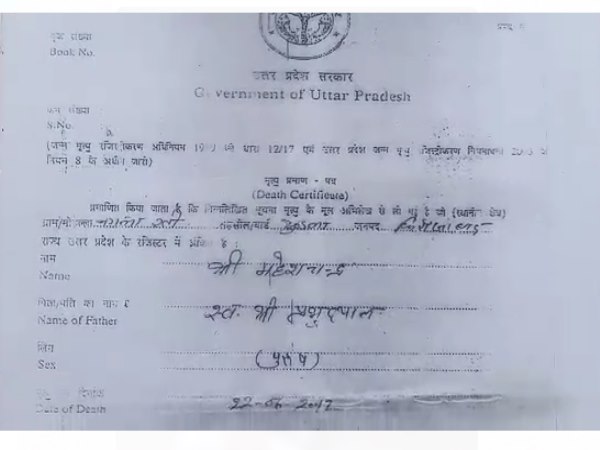 प्रपत्र
बुक संख्या
Book No.
उत्तर प्रदेश सरकार
Government of Uttar Pradesh
क्रम संख्या
S.No.
(जन्म मृत्यु रजिस्ट्रीकरण अधिनियम की धारा 12/17 एवं उत्तर प्रदेश जन्म मृत्यु रजिस्ट्रीकरण नियमावली
नियम 8 के अधीन जारी)
मृत्यु प्रमाण - पत्र
(Death Certificate)
प्रमाणित किया जाता है कि निम्नलिखित सूचना मृत्यु के मूल अभिलेख से ली गई है जो (स्थानीय क्षेत्र)
ग्राम/मोहल्ला तहसील/वार्ड जनपद
राज्य उत्तर प्रदेश के रजिस्टर में अंकित है :
नाम श्री महेशचन्द्र
Name
पिता/पति का नाम स्व. श्री
Name of Father
लिंग (पुरुष)
Sex
दिनांक
Date of Death 22-06-2012